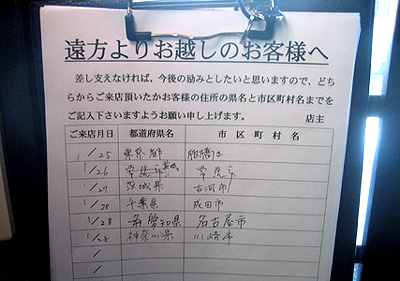 遠方よりお越しのお客様へ
差し支えなければ、今後の励みとしたいと思いますので、どち
らからご来店頂いたかお客様の住所の県名と市区町村名までを
ご記入下さいますようお願い申し上げます。 店主
ご来店月日 都道府県名 市区町村名
1/25 東京都 船橋市
1/26 常総市 茨城 常総市
1/27 茨城県 古河市
1/28 千葉県 成田市
1/28 愛知県 名古屋市
1/28 神奈川県 川崎市
/
/